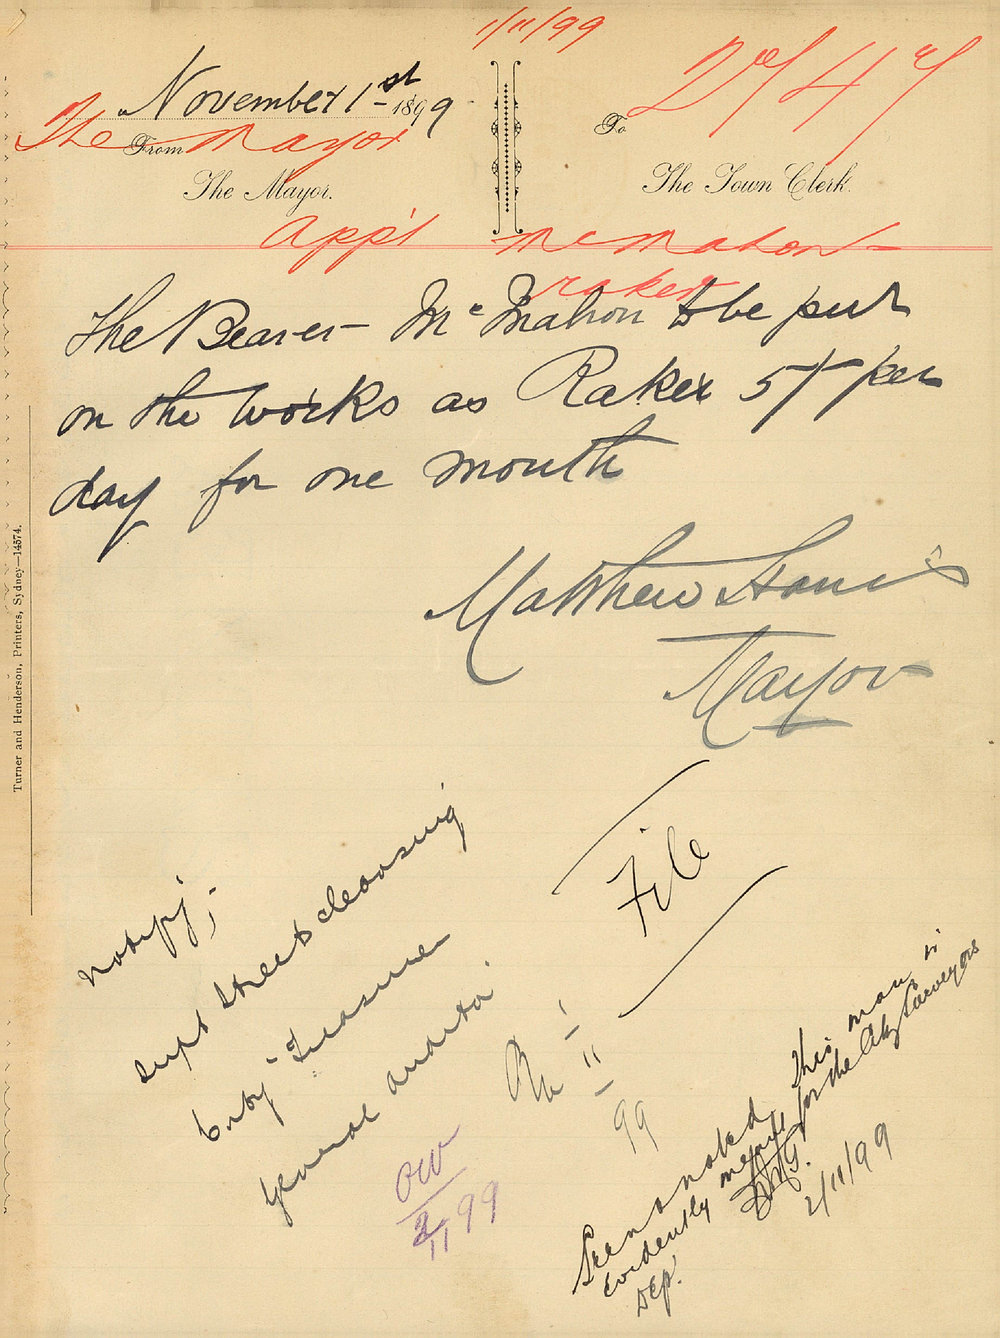 1/11/99
November 1st 1899
The Mayor
From
The Mayor.
To
The Town Clerk.
Appt McMahon -
raker
The Bearer - McMahon to be put
on the works as Raker 5/ per
day for one month
Matthew Harris
Mayor
File
notify;
Supt Street Cleansing
City Treasurer
General
1/11/99
OW
2/11/99
Seen & noted this man is
evidently meant for the City Surveyors
Dep.
2/11/99
Turner and Henderson, Printers, Sydney—14574.